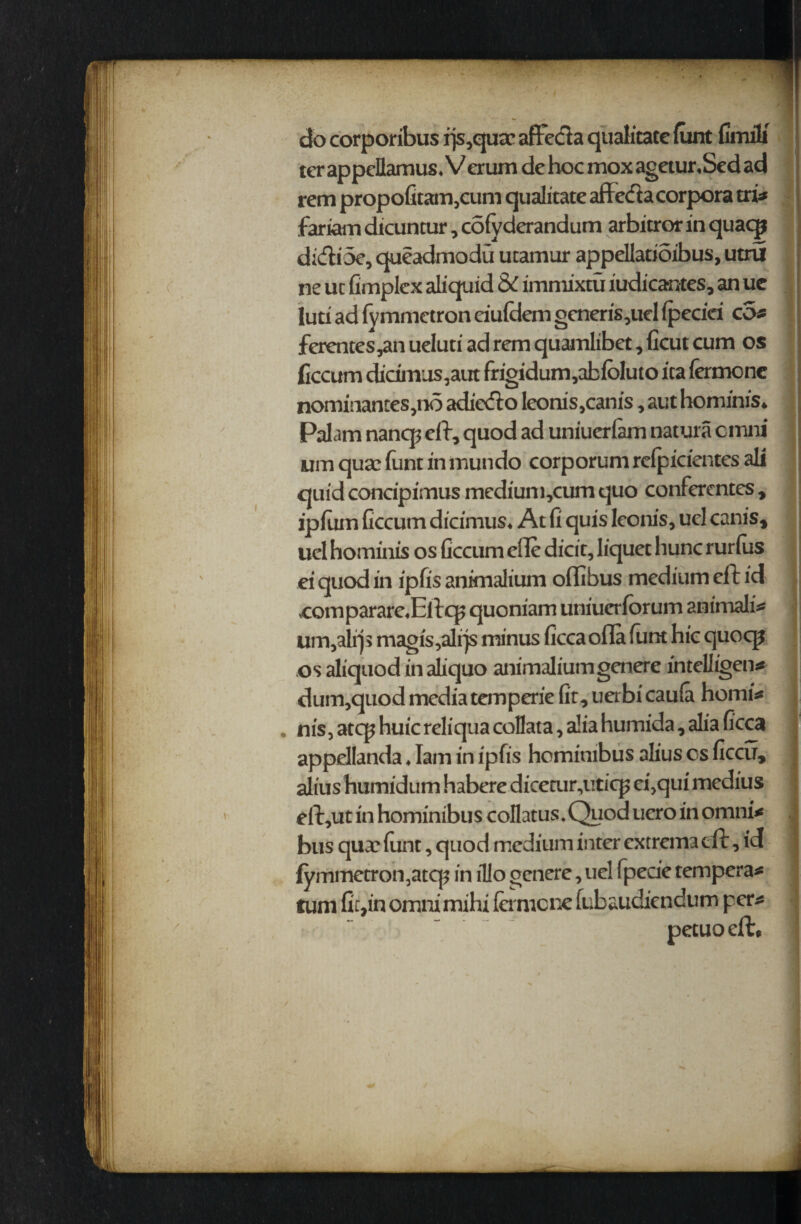 do corporibus ijs,quæ affecta qualitate ſunt ſimili
ter appellamus. Verum de hoc mox agetur.Sed ad
rem propoſitam,cum qualitate affecta corpora tri⸗
fariam dicuntur, cõſyderandum arbitror in quaqꝫ
dictiõe, quẽadmodũ utamur appellatiõibus, utrũ
ne ut ſimplex aliquid & immixtũ iudicantes, an ue
luti ad ſymmetron eiuſdem generis,uel ſpeciei cõ⸗
ferentes,an ueluti ad rem quamlibet, ſicut cum os
ſiccum dicimus,aut frigidum,abſoluto ita ſermone
nominantes,nõ adiecto leonis,canis, aut hominis.
Palam nanqꝫ eſt, quod ad uniuerſam naturã omni
um quæ ſunt in mundo corporum reſpicientes ali
quid concipimus medium,cum quo conferentes,
ipſum ſiccum dicimus. At ſi quis leonis, uel canis,
uel hominis os ſiccum eſſe dicit, liquet hunc rurſus
ei quod in ipſis animalium oſſibus medium eſt id
comparare.Eſtqꝫ quoniam uniuerſorum animali⸗
um,alijs magis,alijs minus ſicca oſſa ſunt hic quoqꝫ
os aliquod in aliquo animalium genere intelligen⸗
dum,quod media temperie ſit, uerbi cauſa homi⸗
nis, atqꝫ huic reliqua collata, alia humida, alia ſicca
appellanda. Iam in ipſis hominibus alius os ſiccũ,
alius humidum habere dicetur,utiqꝫ ei,qui medius
eſt,ut in hominibus collatus. Quod uero in omni⸗
bus quæ ſunt, quod medium inter extrema eſt, id
ſymmetron,atqꝫ in illo genere, uel ſpecie tempera⸗
tum ſit,in omni mihi ſermone ſubaudiendum per⸗
petuo eſt.